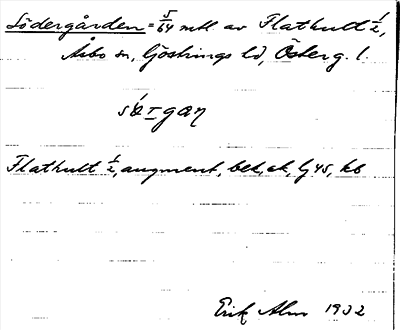 Södergården = 5/64 mtl. av Flathult 1/2,
Asbo sn, Göstrings hd, Österg. l.
Flathult 1/2, augment, bek, ek, lj 45, kb
Erik Alm 1932